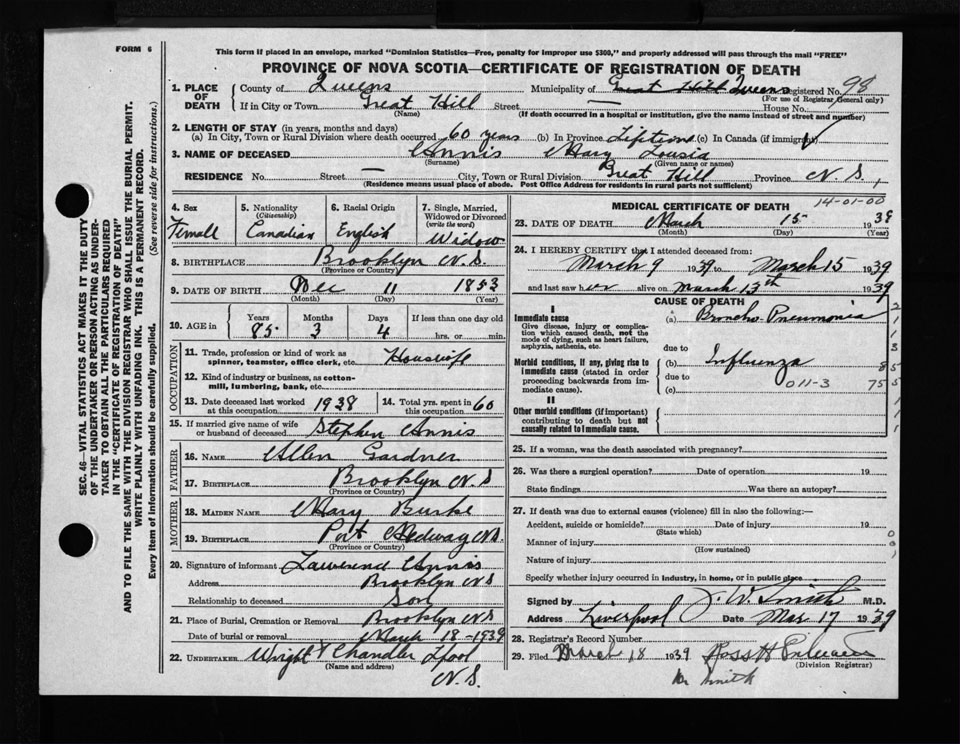 FORM 6
This form if placed in an envelope, marked "Dominion Statistics—Free, penalty for improper use $300," and properly addressed will pass through the mail "FREE"
PROVINCE OF NOVA SCOTIA—CERTIFICATE OF REGISTRATION OF DEATH
1. PLACE OF DEATH County of Queens Municipality of Great Hill Queens Registered No. 98
(For use of Registrar General only)
If in City or Town Great Hill Street — House No.
(Name) (If death occurred in a hospital or institution, give the name instead of street and number)
2. LENGTH OF STAY (in years, months and days)
(a) In City, Town or Rural Division where death occurred 60 years (b) In Province Lifetime (c) In Canada (if immigrant)
3. NAME OF DECEASED Annis Mary Lousia
(Surname) (Given name or names)
RESIDENCE No. Street — City, Town or Rural Division Great Hill Province N.S.
(Residence means usual place of abode. Post Office Address for residents in rural parts not sufficient)
14-01-00
4. Sex 5. Nationality (Citizenship) 6. Racial Origin 7. Single, Married, Widowed or Divorced (write the word)
Female Canadian English Widow
8. BIRTHPLACE Brooklyn N.S.
(Province or Country)
9. DATE OF BIRTH Dec 11 1853
(Month) (Day) (Year)
10. AGE in Years Months Days If less than one day old
85 3 4 hrs. or min.
OCCUPATION
11. Trade, profession or kind of work as spinner, teamster, office clerk, etc. Housewife
12. Kind of industry or business, as cotton-mill, lumbering, bank, etc.
13. Date deceased last worked at this occupation 1938 14. Total yrs. spent in this occupation 60
15. If married give name of wife or husband of deceased Stephen Annis
FATHER
16. NAME Allen Gardner
17. BIRTHPLACE Brooklyn N.S
(Province or Country)
MOTHER
18. MAIDEN NAME Mary Burke
19. BIRTHPLACE Port Medway N.S.
(Province or Country)
20. Signature of informant Lawrend Annis
Address Brooklyn N.S
Relationship to deceased Son
21. Place of Burial, Cremation or Removal Brooklyn N.S
Date of burial or removal March 18-1939
22. UNDERTAKER Wright & Chandler Lpool
(Name and address)
N.S.
MEDICAL CERTIFICATE OF DEATH
23. DATE OF DEATH March 15 1939
(Month) (Day) (Year)
24. I HEREBY CERTIFY that I attended deceased from:
March 9 1939 to March 15 1939
and last saw her alive on March 13th 1939
CAUSE OF DEATH
I
Immediate cause (a) Broncho-Pneumonia
Give disease, injury or complication which caused death, not the mode of dying, such as heart failure, asphyxia, asthenia, etc.
due to
Morbid conditions, if any, giving rise to immediate cause (stated in order proceeding backwards from immediate cause). (b) Influenza
due to 011-3
(c)
II
Other morbid conditions (if important) contributing to death but not causally related to immediate cause.
25. If a woman, was the death associated with pregnancy?
26. Was there a surgical operation? Date of operation 19
State findings Was there an autopsy?
27. If death was due to external causes (violence) fill in also the following:—
Accident, suicide or homicide? Date of injury 19
(State which)
Manner of injury
(How sustained)
Nature of injury
Specify whether injury occurred in industry, in home, or in public place
Signed by J. W. Smith M.D.
Address Liverpool Date Mar 17 1939
28. Registrar's Record Number
29. Filed March 18 1939 Ross H
(Division Registrar)
Dr Smith
SEC. 46—VITAL STATISTICS ACT MAKES IT THE DUTY
OF THE UNDERTAKER OR PERSON ACTING AS UNDER-
TAKER TO OBTAIN ALL THE PARTICULARS REQUIRED
IN THE "CERTIFICATE OF REGISTRATION OF DEATH"
AND TO FILE THE SAME WITH THE DIVISION REGISTRAR WHO SHALL ISSUE THE BURIAL PERMIT.
WRITE PLAINLY WITH UNFADING INK. THIS IS A PERMANENT RECORD.
Every item of information should be carefully supplied. (See reverse side for instructions.)